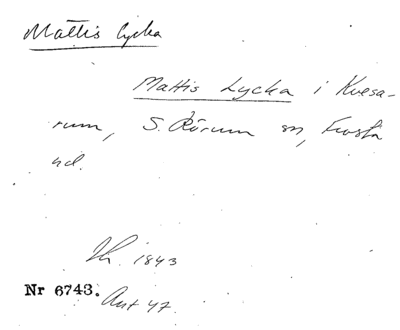 Mattis Lycka
Mattis Lycka i Kvesa-
rum, S. Rörum sn, Frosta
hd.
1843
Nr 6743. Ant 47.